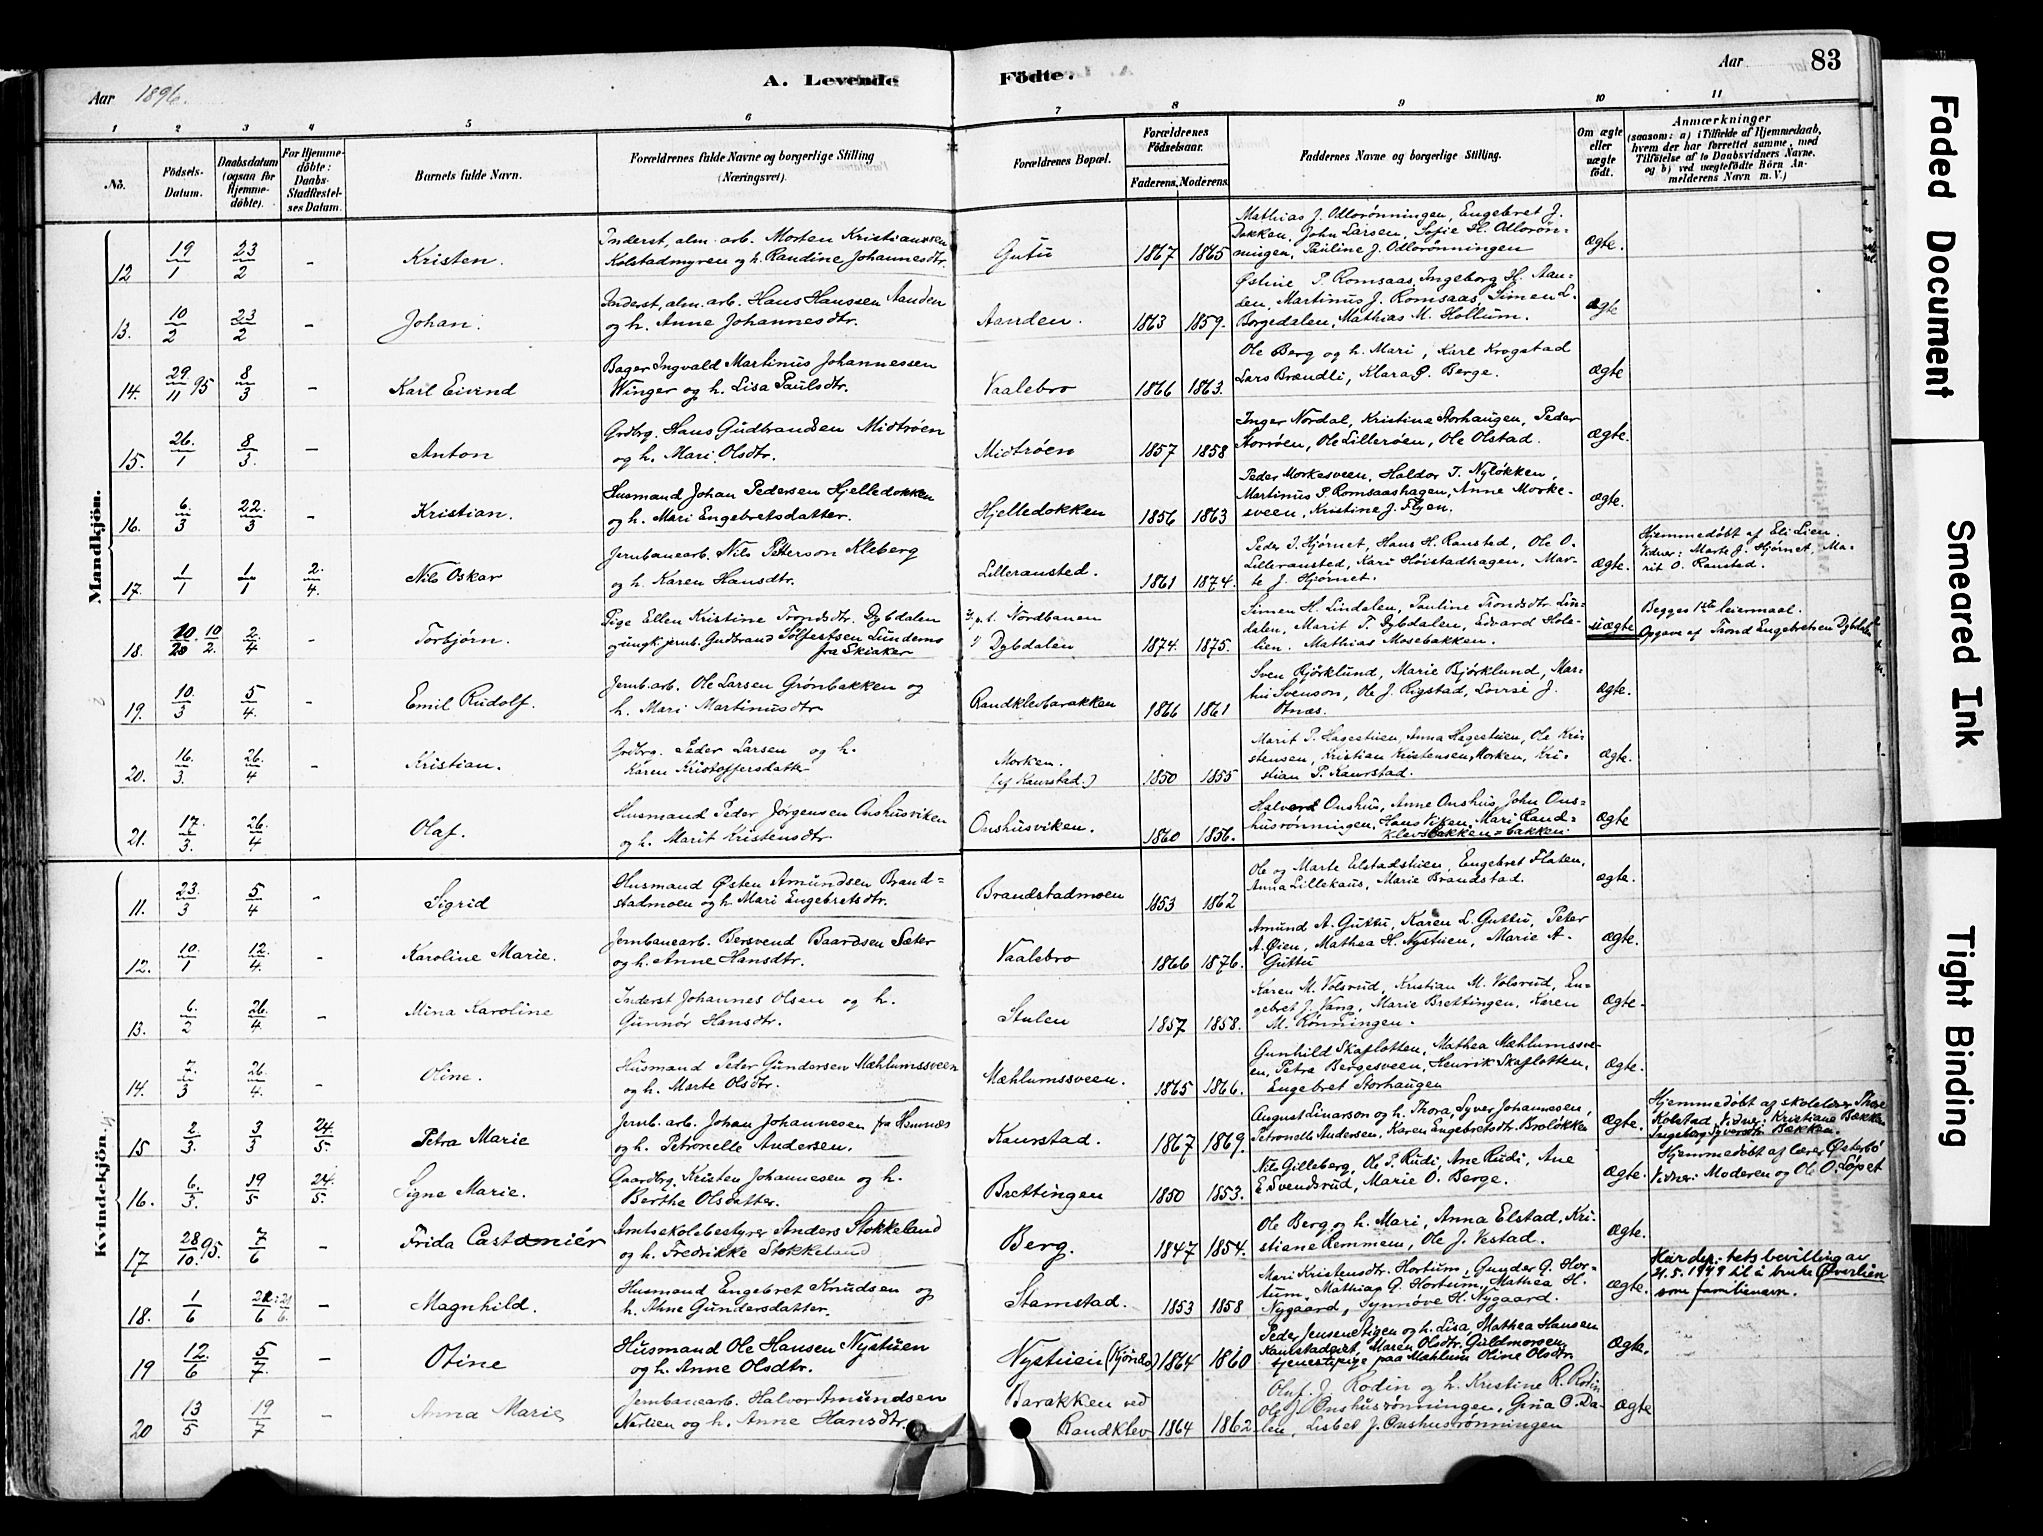 Aar 1896.
A. Levende Födte.
Aar
83
1 2 3 4 5 6 7 8 9 10 11
No.
Födsels-Datum.
Daabsdatum (ogsaa for Hjemmedöbte).
For Hjemmedöbte: Daabs-Stadfæstelses Datum.
Barnets fulde Navn.
Forældrenes fulde Navne og borgerlige Stilling (Næringsvei).
Forældrenes Bopæl.
Forældrenes Födselsaar.
Faderens. Moderens.
Faddernes Navne og borgerlige Stilling.
Om ægte eller uægte födt.
Anmærkninger
(saasom: a) i Tilfælde af Hjemmedaab, hvem der har forrettet samme, med Tilföielse af to Daabsvidners Navne, og b) ved uægtefödte Börn Anmelderens Navn m. V.)
Mandkjön.
12 19/1 23/2 - Kristen. Inderst, alm. arb. Morten Kristianssen
Kolstadmyren og h. Randine Johannesdtr. Gutu 1867 1865 Mathias J. Odlorønningen, Engebret J.
Dokken, John Larsen, Sofie H. Odlorøn-
ningen, Pauline J. Odlorønningen ægte.
13. 10/2 23/2 - Johan. Inderst, alm. arb. Hans Hanssen Aanden
og h. Anne Johannesdtr. Aanden. 1863 1859. Østine P. Romsaas, Ingeborg H. Aan-
den, Martinus J. Romsaas, Simen L.
Borgedalen, Mathias M. Hollum. ægte
14. 29/11 95 8/3 - Karl Eivind Bager Ingvald Martinus Johannessen
Winger og h. Lisa Paulsdtr. Vaalebro 1866 1863. Ole Berg og h. Mari, Karl Krogstad
Lars Brændli, Klara P. Berge. ægte
15. 26/1 8/3. - Anton Grdbrg. Hans Gudbrandsen Midtrøen
og h. Mari Olsdtr. Midtrøen 1857 1858 Inger Nordal, Kristine Storhaugen, Peder
Storrøen, Ole Lillerøen, Ole Olstad. ægte.
16. 6/3 22/3 - Kristian. Husmand Johan Pedersen Hjelledokken
og h. Mari Engebretsdatter. Hjelledokken 1856 1863 Peder Morkesveen, Haldor T. Nyløkken,
Martinus P. Romsaashagen, Anne Morke-
sveen, Kristine J. Flyen. ægte.
17. 1/1 1/1 2/4. Nils Oskar Jernbanearb. Nils Petterson Kleberg
og h. Karen Hansdtr. Lilleransted. 1861 1874. Peder J. Hjørnet, Hans H. Ransted, Ole O.
Lilleransted, Kari Høistadhagen, Mar-
te J. Hjørnet. ægte. Hjemmedøbt af Eli Lien
Vidner: Marte J. Hjørnet, Ma-
rit O. Ransted.
18. 10/2. 2/4 - Torbjørn. Pige Ellen Kristine Trondsdtr. Dybdalen
og ungk. jernb. Gudbrand Sølfestsen Lundemo
fra Skiaker p. t. Nordbanen
Dybdalen 1874. 1875. Simen H. Lindalen, Pauline Trondsdtr. Lin-
dalen, Marit T. Dybdalen, Edvard Hole-
lien. Mathias Mosebakken. uægte Begges 1ste leiermaal.
Opgave af Trond Engebretsen Dybdalen
19. 10/3 5/4. - Emil Rudolf. Jernb. arb. Ole Larsen Grønbakken og
h. Mari Martinusdtr Randklevbarakken 1866 1861 Sven Bjørklund, Marie Bjørklund, Mar-
Svenson, Ole J. Rigstad, Lovise J.
Otnæs. ægte.
20. 16/3. 26/4 - Kristian. Grdbrg. Peder Larsen og h.
Karen Kristoffersdatter Morken.
(af Kaurstad.) 1850 1855 Marit P. Hagestuen, Anna Hagestuen, Ole Kri-
stensen, Kristian Kristensen Morken, Kri-
stian P. Kaurstad. ægte.
21. 17/3. 26/4 - Olaf. Husmand Peder Jørgensen Onshusviken
og h. Marit Kristensdtr Onshusviken. 1860 1856. Halvard Onshus, Anne Onshus, John Ons-
husrønningen, Hans Viken, Mari Rand-
klevsbakken ægte
Kvindekjön.
11. 23/3 5/4 - Sigrid Husmand Østen Amundsen Brand-
stadmoen og h. Mari Engebretsdtr. Brandstadmoen 1853 1862 Ole og Marte Elstadstuen, Engebret Flaten,
Anna Lillekaus, Marie Brandstad. ægte.
12. 10/1 12/4. - Karoline Marie. Jernbanearb. Bersvend Baardsen Sæter
og h. Anne Hansdtr. Vaalebro 1866 1876. Amund A. Guttu, Karen L. Guttu, Peter
A. Øien, Mathea H. Nystuen, Marie A.
Guttu ægte.
13. 6/2 26/4 - Mina Karoline Inderst Johannes Olsen og h.
Gunnor Hansdtr. Stulen 1857 1858. Karen M. Volsrud, Kristian M. Volsrud, En-
gebret J. Vang, Marie Brettingen, Karen
M. Rønningen. ægte.
14. 7/3 26/4. - Oline. Husmand Peder Gundersen Mæhlumssveen
og h. Marte Olsdtr. Mæhlumssveen. 1865 1866. Gunhild Skaflotten, Mathea Mæhlumssve-
en, Petra Bergesveen, Henrik Skaflotten,
Engebret Storhaugen ægte.
15 2/3. 3/3 24/5. Petra Marie Jernb. arb. Johan Johannesen fra Hemnæs
og h. Petronelle Andersen. Kaurstad. 1867 1869. August Linarson og h. Thora, Syver Johannesen,
Petronelle Andersen, Karen Engebretsdtr Broløkken ægte. Hjemmedøbt af skolelærer Thore
Kolstad. Vidner: Kristiane Bækken
Ingeborg Syversdtr. Bækken.
16. 6/3. 19/5 24/5. Signe Marie. Gaardbrg. Kristen Johannesen og h.
Berthe Olsdatter. Brettingen 1850 1853. Nils Gilleberg, Ole P. Rudi, Ane Rudi, Ane
E Svendsrud, Marie O. Berge. ægte. Hjemmedøbt af lærer Østerbø
Vidner: Moderen og Ole O. Løpet
17 28/10. 95. 7/6 - Frida Castoniér Amtsskolebestyrer Anders Stokkeland
og h. Fredrikke Stokkeland Berg. 1847 1854. Ole Berg og h. Mari, Anna Elstad, Kri-
stiane Remmem, Ole J. Vestad. ægte.
18. 1/6 21/6 - Magnhild. Husmand Engebret Knudsen og
h. Ane Gundersdatter. Stamstad. 1853 1858 Mari Kristensdtr. Hortum, Gunder G. Hor-
tum, Mathias G. Hortum, Mathea H.
Nygaard, Synnøve H. Nygaard. ægte. Har dep.-tets bevilling av
21.5.1949 til å bruke Øverlien
som familienavn.
19 12/6 5/7. - Otine Husmand Ole Hansen Nystuen
og h. Anne Olsdtr. Nystuen (Kjønås) 1864 1860 Peder Jensen Stigen og h. Lisa, Mathea Hansen
Kaurstadeiet, Maren Olsdtr. Guldmorsen,
tjenestepige paa Mæhlum Oline Olsdtr. ægte.
20 13/5 19/7 - Anna Marie Jernbanearb. Halvor Amundsen
Nerlien og h. Anne Hansdtr. Barakken ved
Randklev 1864 1862 Oluf J. Rodin og h. Kristine R. Rodin
Ole J. Onshusrønningen, Gina O. Da-
len, Lisbet J. Onshusrønningen ægte
Faded Document
Smeared Ink
Tight Binding